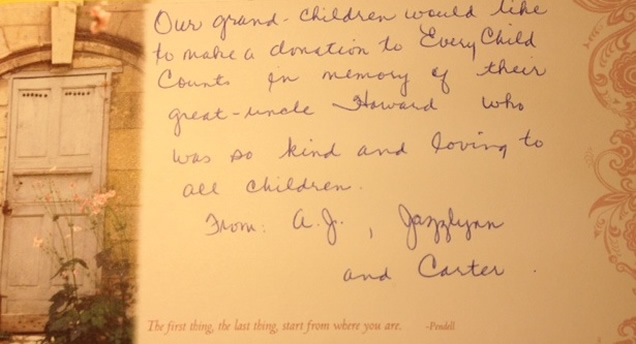 Our grand-children would like
to make a donation to Every Child
Counts in memory of their
great-uncle Howard who
was so kind and loving to
all children.
From: A.J., Jazzlynn
and Carter.
The first thing, the last thing, start from where you are. -Pendell